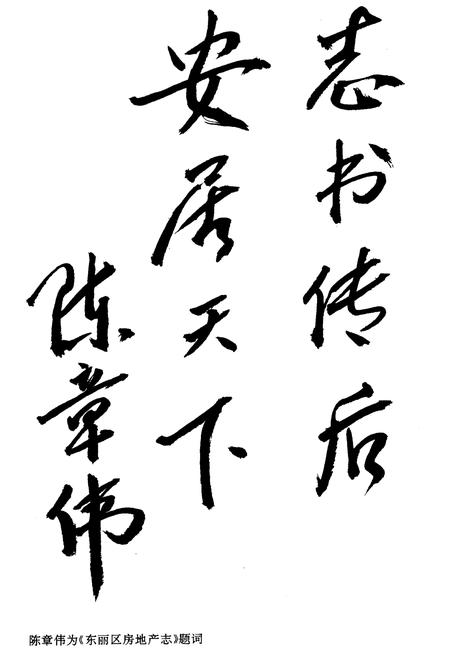 志书传后
安居天下
陈章伟
陈章伟为《东丽区房地产志》题词